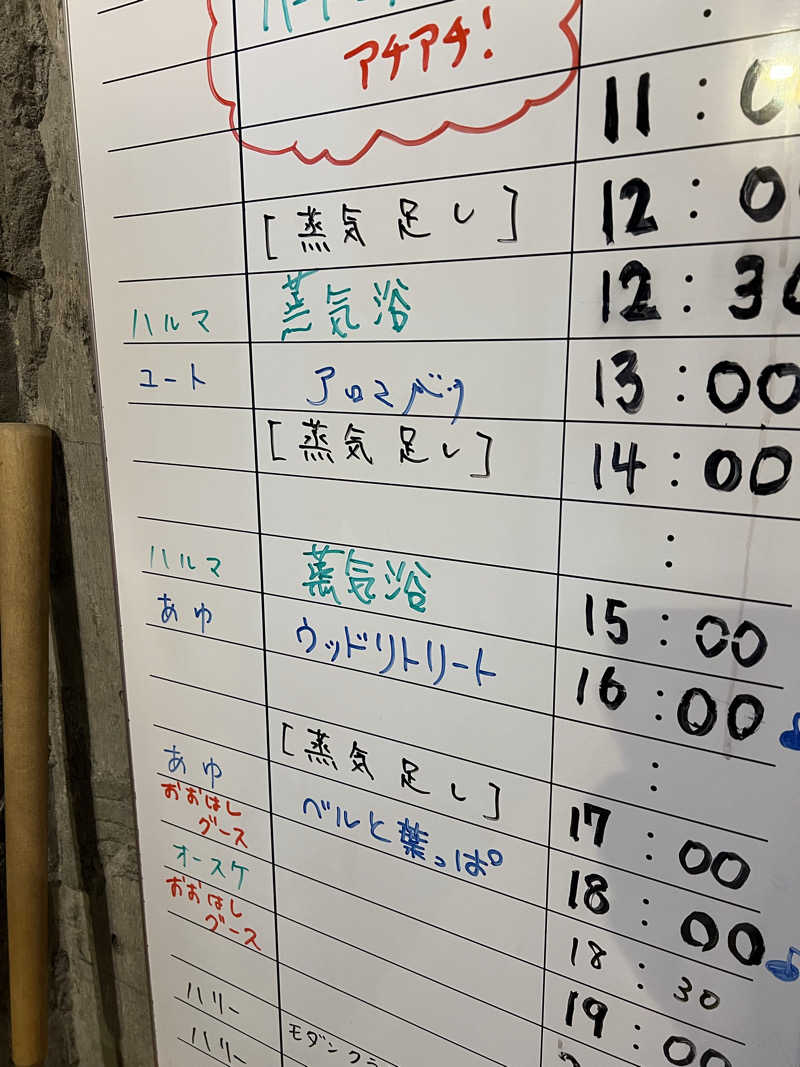 アチアチ!
11:0
[蒸気足し] 12:0
ハルマ 蒸気浴 12:30
ユート 13:00
[蒸気足し] 14:00
:
ハルマ 蒸気浴 15:00
あゆ ウッドリトリート 16:00
:
[蒸気足し] 17:00
あゆ ベルと葉っぱ 18:00
おおはし
グース 18:30
オースケ 19:00
おおはし
グース
ハリー
ハリー モダンクラ